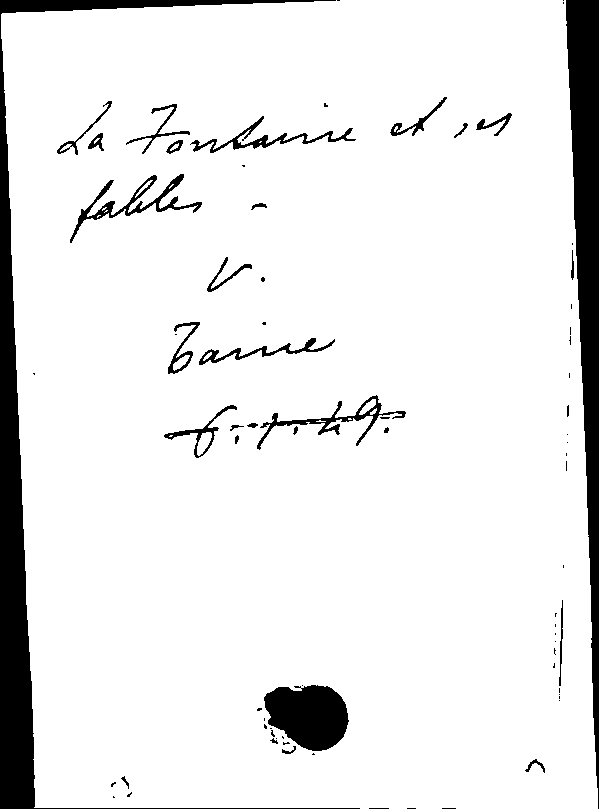 La Fontaine et ses
fables -
V.
Taine
6.1.49.